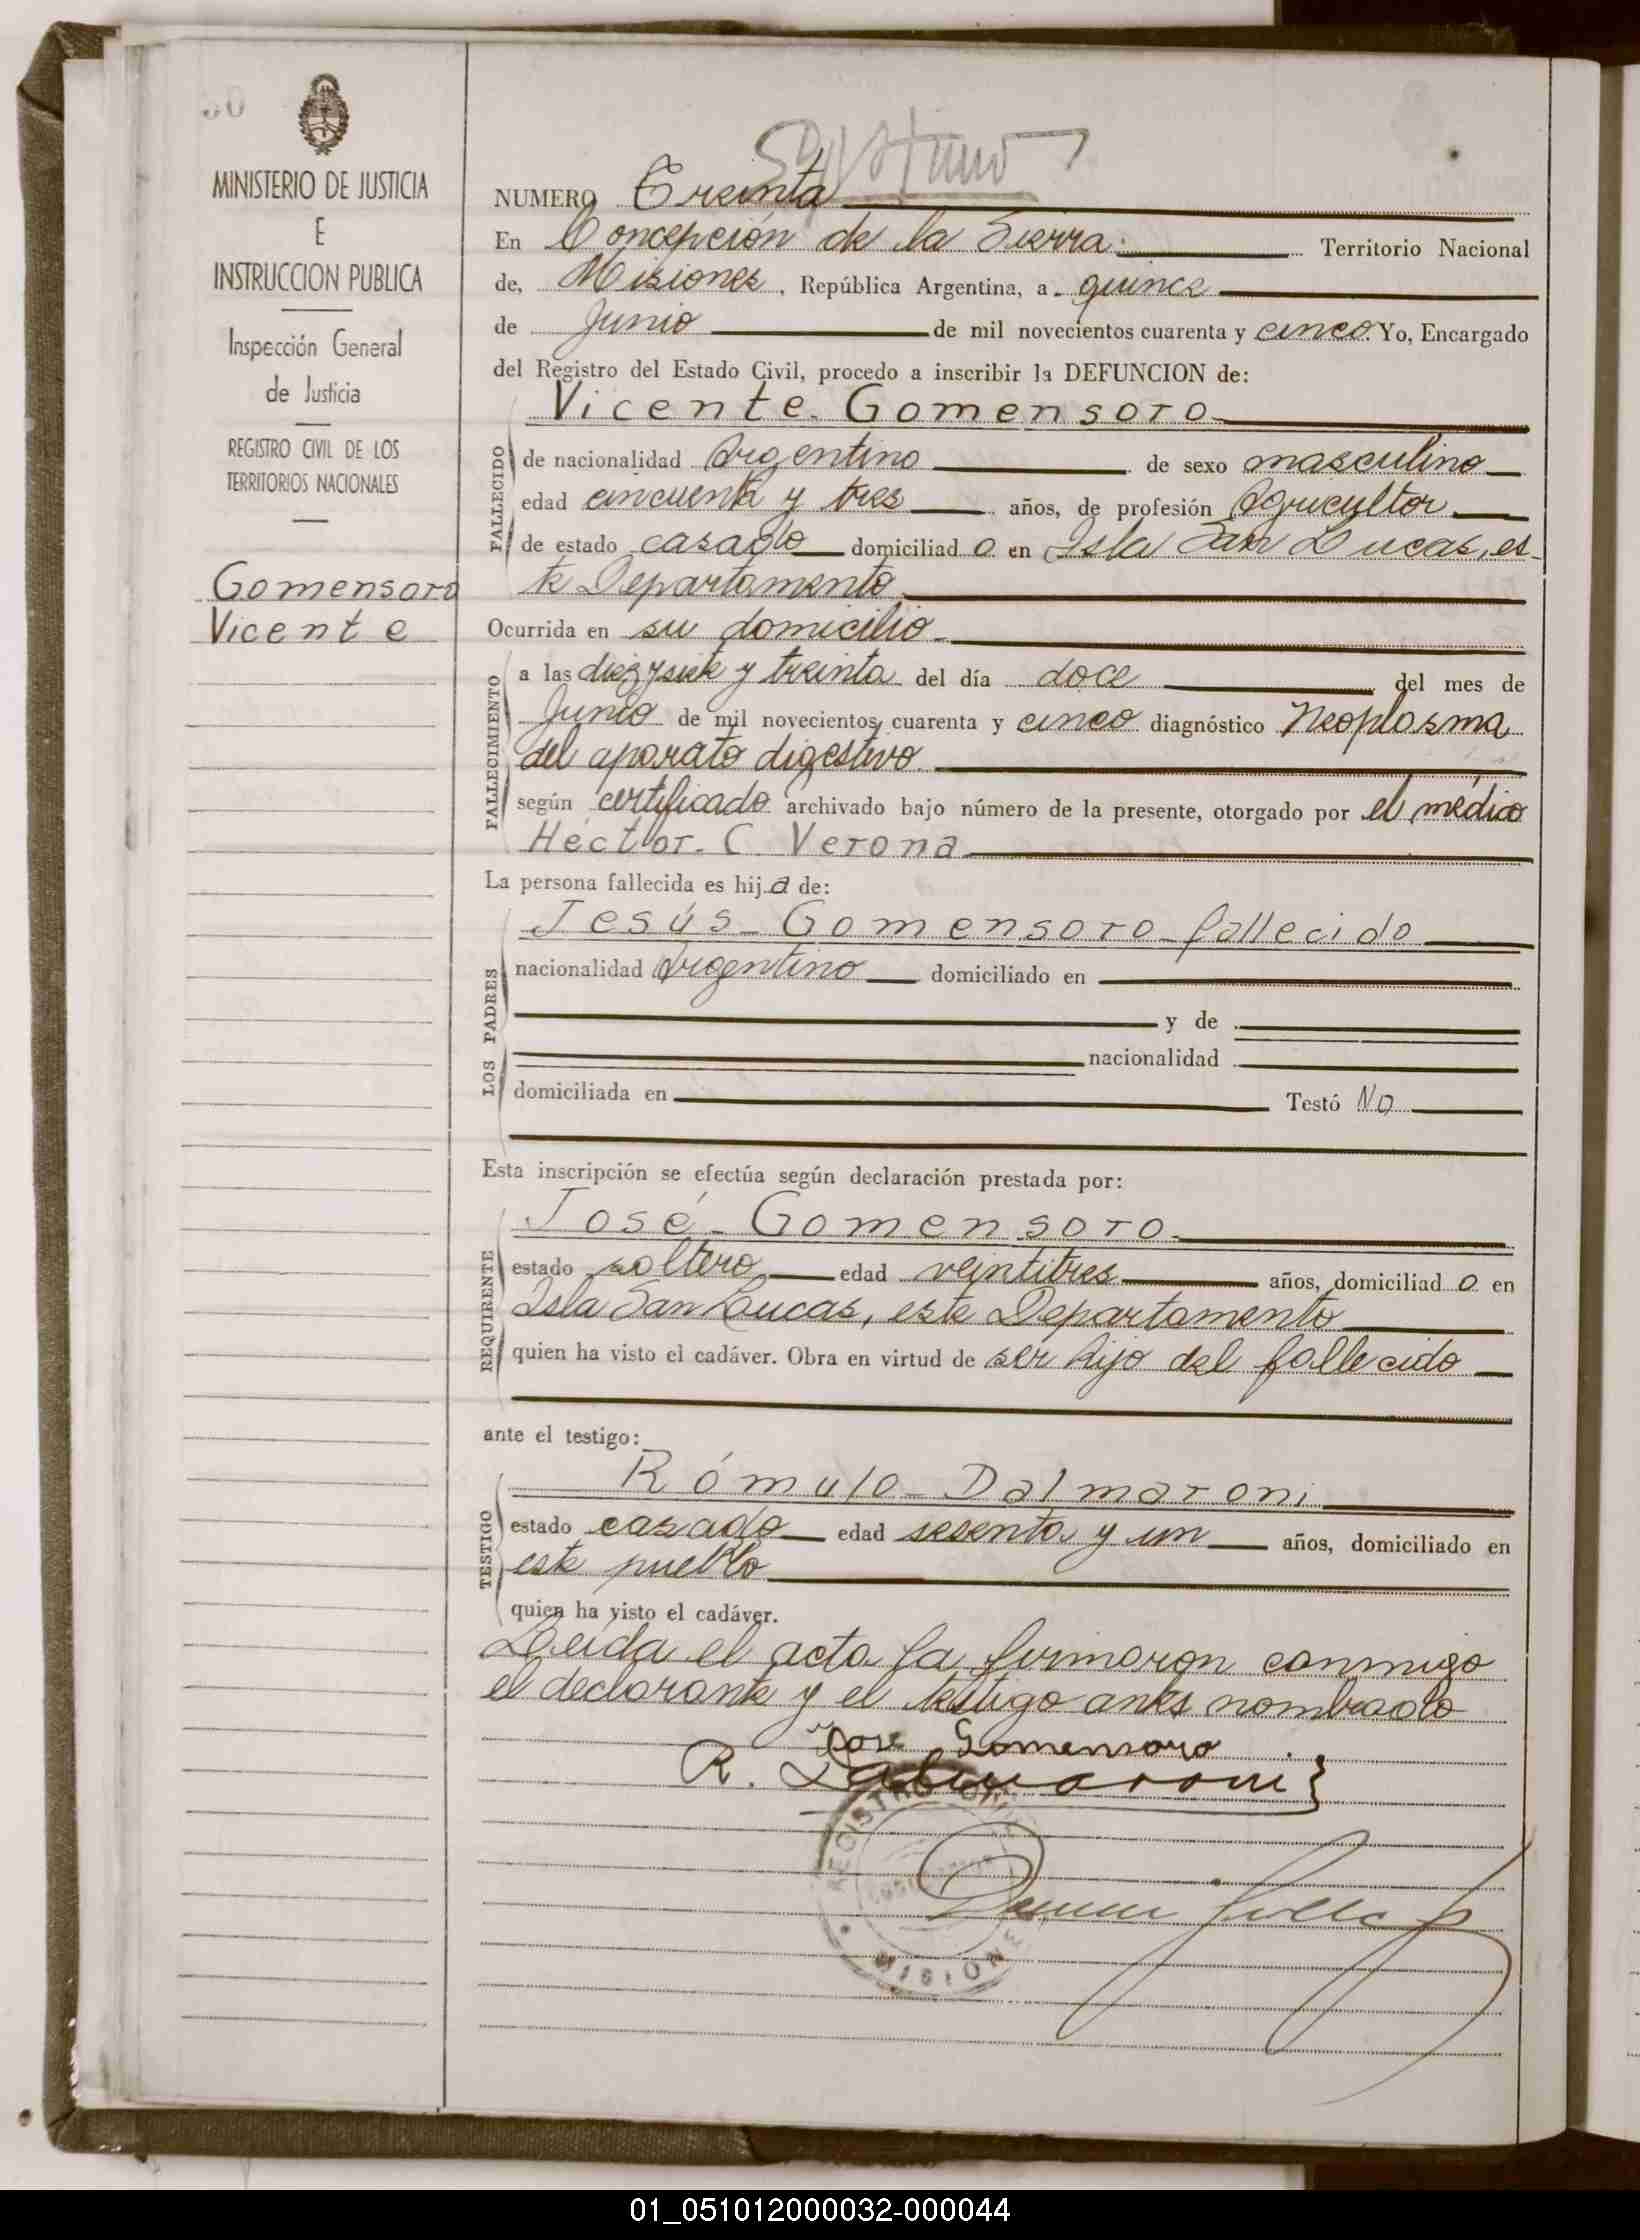 MINISTERIO DE JUSTICIA
E
INSTRUCCION PUBLICA
Inspección General
de Justicia
REGISTRO CIVIL DE LOS
TERRITORIOS NACIONALES
Gomensoro
Vicente
NUMERO Treinta
En Concepción de la Sierra. Territorio Nacional
de, Misiones, República Argentina, a quince
de Junio de mil novecientos cuarenta y cinco. Yo, Encargado
del Registro del Estado Civil, procedo a inscribir la DEFUNCION de:
Vicente Gomensoro
FALLECIDO
de nacionalidad Argentino de sexo masculino
edad cincuenta y tres años, de profesión Agricultor
de estado casado domiciliad o en Isla San Lucas, es-
te Departamento
Ocurrida en su domicilio
FALLECIMIENTO
a las diez y siete y treinta del día doce del mes de
Junio de mil novecientos cuarenta y cinco diagnóstico Neoplasma
del aparato digestivo
según certificado archivado bajo número de la presente, otorgado por el médico
Héctor C. Verona
La persona fallecida es hij a de:
LOS PADRES
Jesús Gomensoro fallecido
nacionalidad Argentino domiciliado en
y de
nacionalidad
domiciliada en Testó No
Esta inscripción se efectúa según declaración prestada por:
REQUIRENTE
José Gomensoro
estado soltero edad veintitres años, domiciliad o en
Isla San Lucas, este Departamento
quien ha visto el cadáver. Obra en virtud de ser hijo del fallecido
ante el testigo:
TESTIGO
Rómulo Dalmaroni
estado casado edad sesenta y un años, domiciliado en
este pueblo
quien ha visto el cadáver.
Leída el acta la firmaron conmigo
el declarante y el testigo antes nombrado
Jose Gomensoro
R. Dalmaroni
REGISTRO
MISIONES
01_051012000032-000044